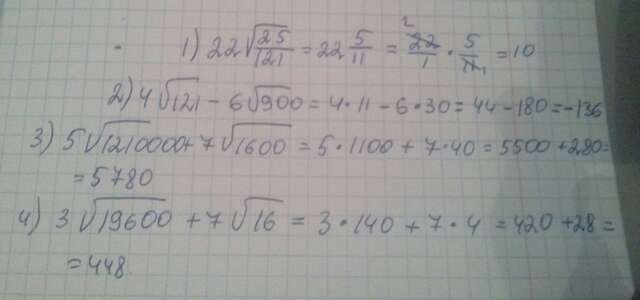 1) 22√25/121 = 22 5/11 = 22/1 · 5/11 = 10
2) 4√121 - 6√900 = 4·11 - 6·30 = 44 - 180 = -136
3) 5√1210000 + 7√1600 = 5·1100 + 7·40 = 5500 + 280 =
= 5780
4) 3√19600 + 7√16 = 3·140 + 7·4 = 420 + 28 =
= 448